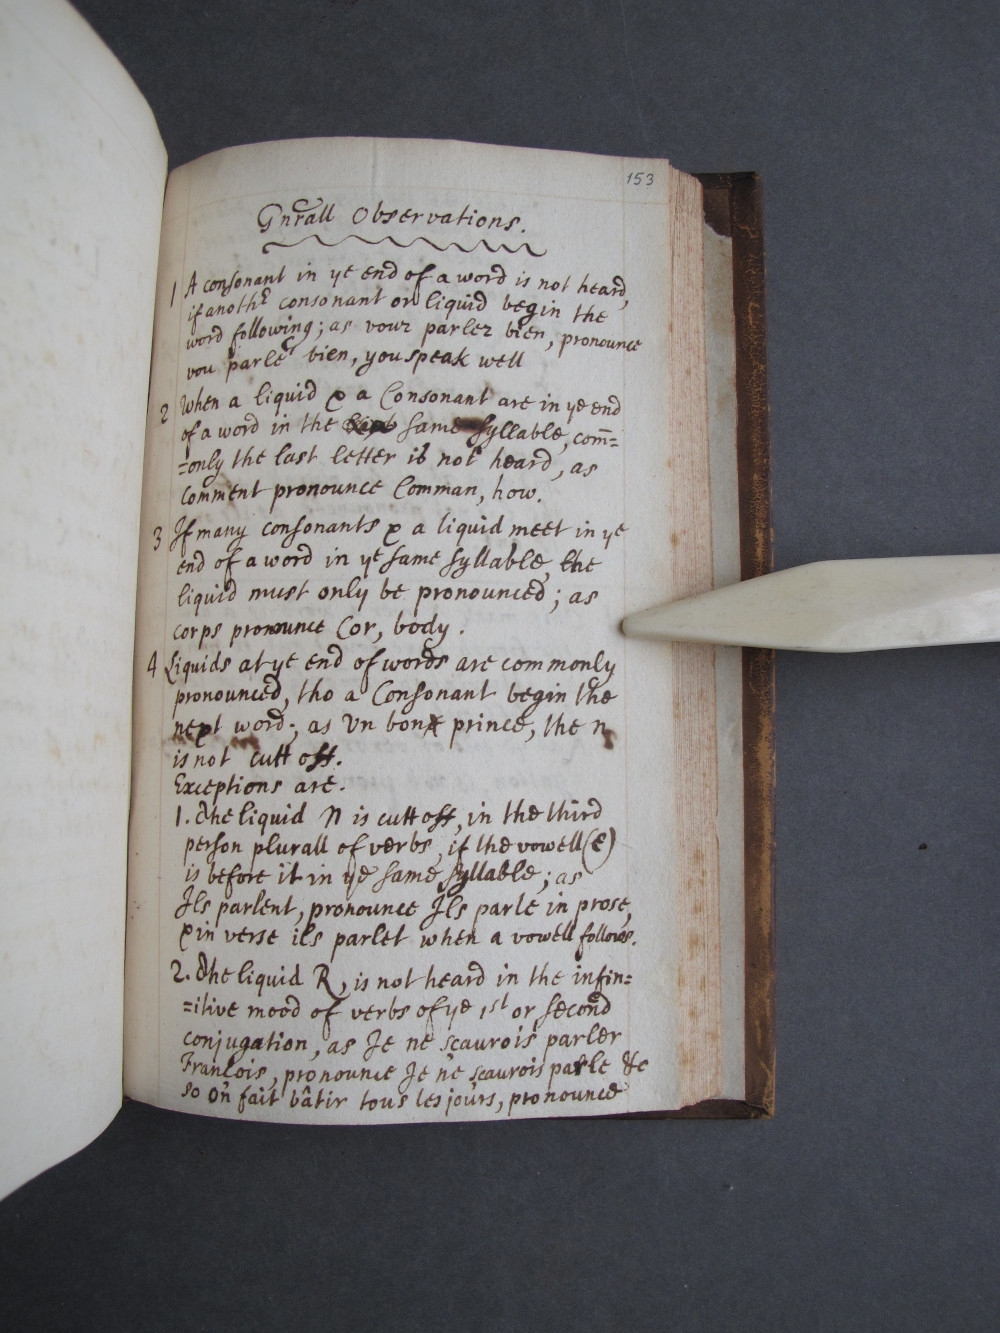 153
Gnrall Observations.
1 A consonant in ye end of a word is not heard,
if anothr consonant or liquid begin the
word following; as vouz parlez bien, pronounce
vou parle bien, you speak well
2 When a liquid & a Consonant are in ye end
of a word in the same syllable, com̄=
=only the last letter is not heard, as
Comment pronounce Comman, how.
3 If many consonants & a liquid meet in ye
end of a word in ye same syllable, the
liquid must only be pronounced; as
corps pronounce Cor, body.
4 Liquids at ye end of words are commonly
pronounced, tho a Consonant begin the
next word; as Un bon prince, the n
is not cutt off.
Exceptions are.
1. The liquid N is cutt off, in the third
person plurall of verbs, if the vowell (e)
is before it in ye same syllable; as
Ils parlent, pronounce Ils parle in prose,
& in verse ils parlet when a vowell follows.
2. The liquid R, is not heard in the infin=
=itive mood of verbs of ye 1st or second
conjugation, as Je ne sçaurois parler
Francois, pronounce Je ne sçaurois parle &c
so on fait bâtir tous les jours, pronounce